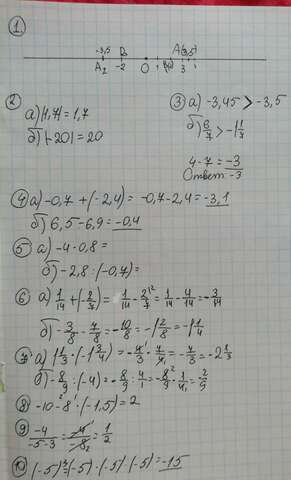 ①
-3,5 B A(3,5)
A₂ -2 O 1 3
② а) |1,7| = 1,7
б) |-20| = 20
③ а) -3,45 > -3,5
б) 6/7 > -1 1/7
4-7 = -3
Ответ: -3
④ а) -0,7 + (-2,4) = -0,7-2,4 = -3,1
б) 6,5-6,9 = -0,4
⑤ а) -4·0,8 =
б) -2,8 : (-0,7) =
⑥ а) 1/14 + (-2/7) = 1/14 - 2/7 = 1/14 - 4/14 = -3/14
б) -3/8 - 7/8 = -10/8 = -1 2/8 = -1 1/4
⑦ а) 1 1/3 · (-1 3/4) = -4/3 · 7/4 = -7/3 = -2 1/3
б) -8/9 : (-4) = -8/9 : 4/1 = -8/9 · 1/4 = 2/9
⑧ -10-8 · (-1,5) = 2
⑨ -4/-5-3 = -4/-8 = 1/2
⑩ (-5)³ = (-5)·(-5)·(-5) = -15